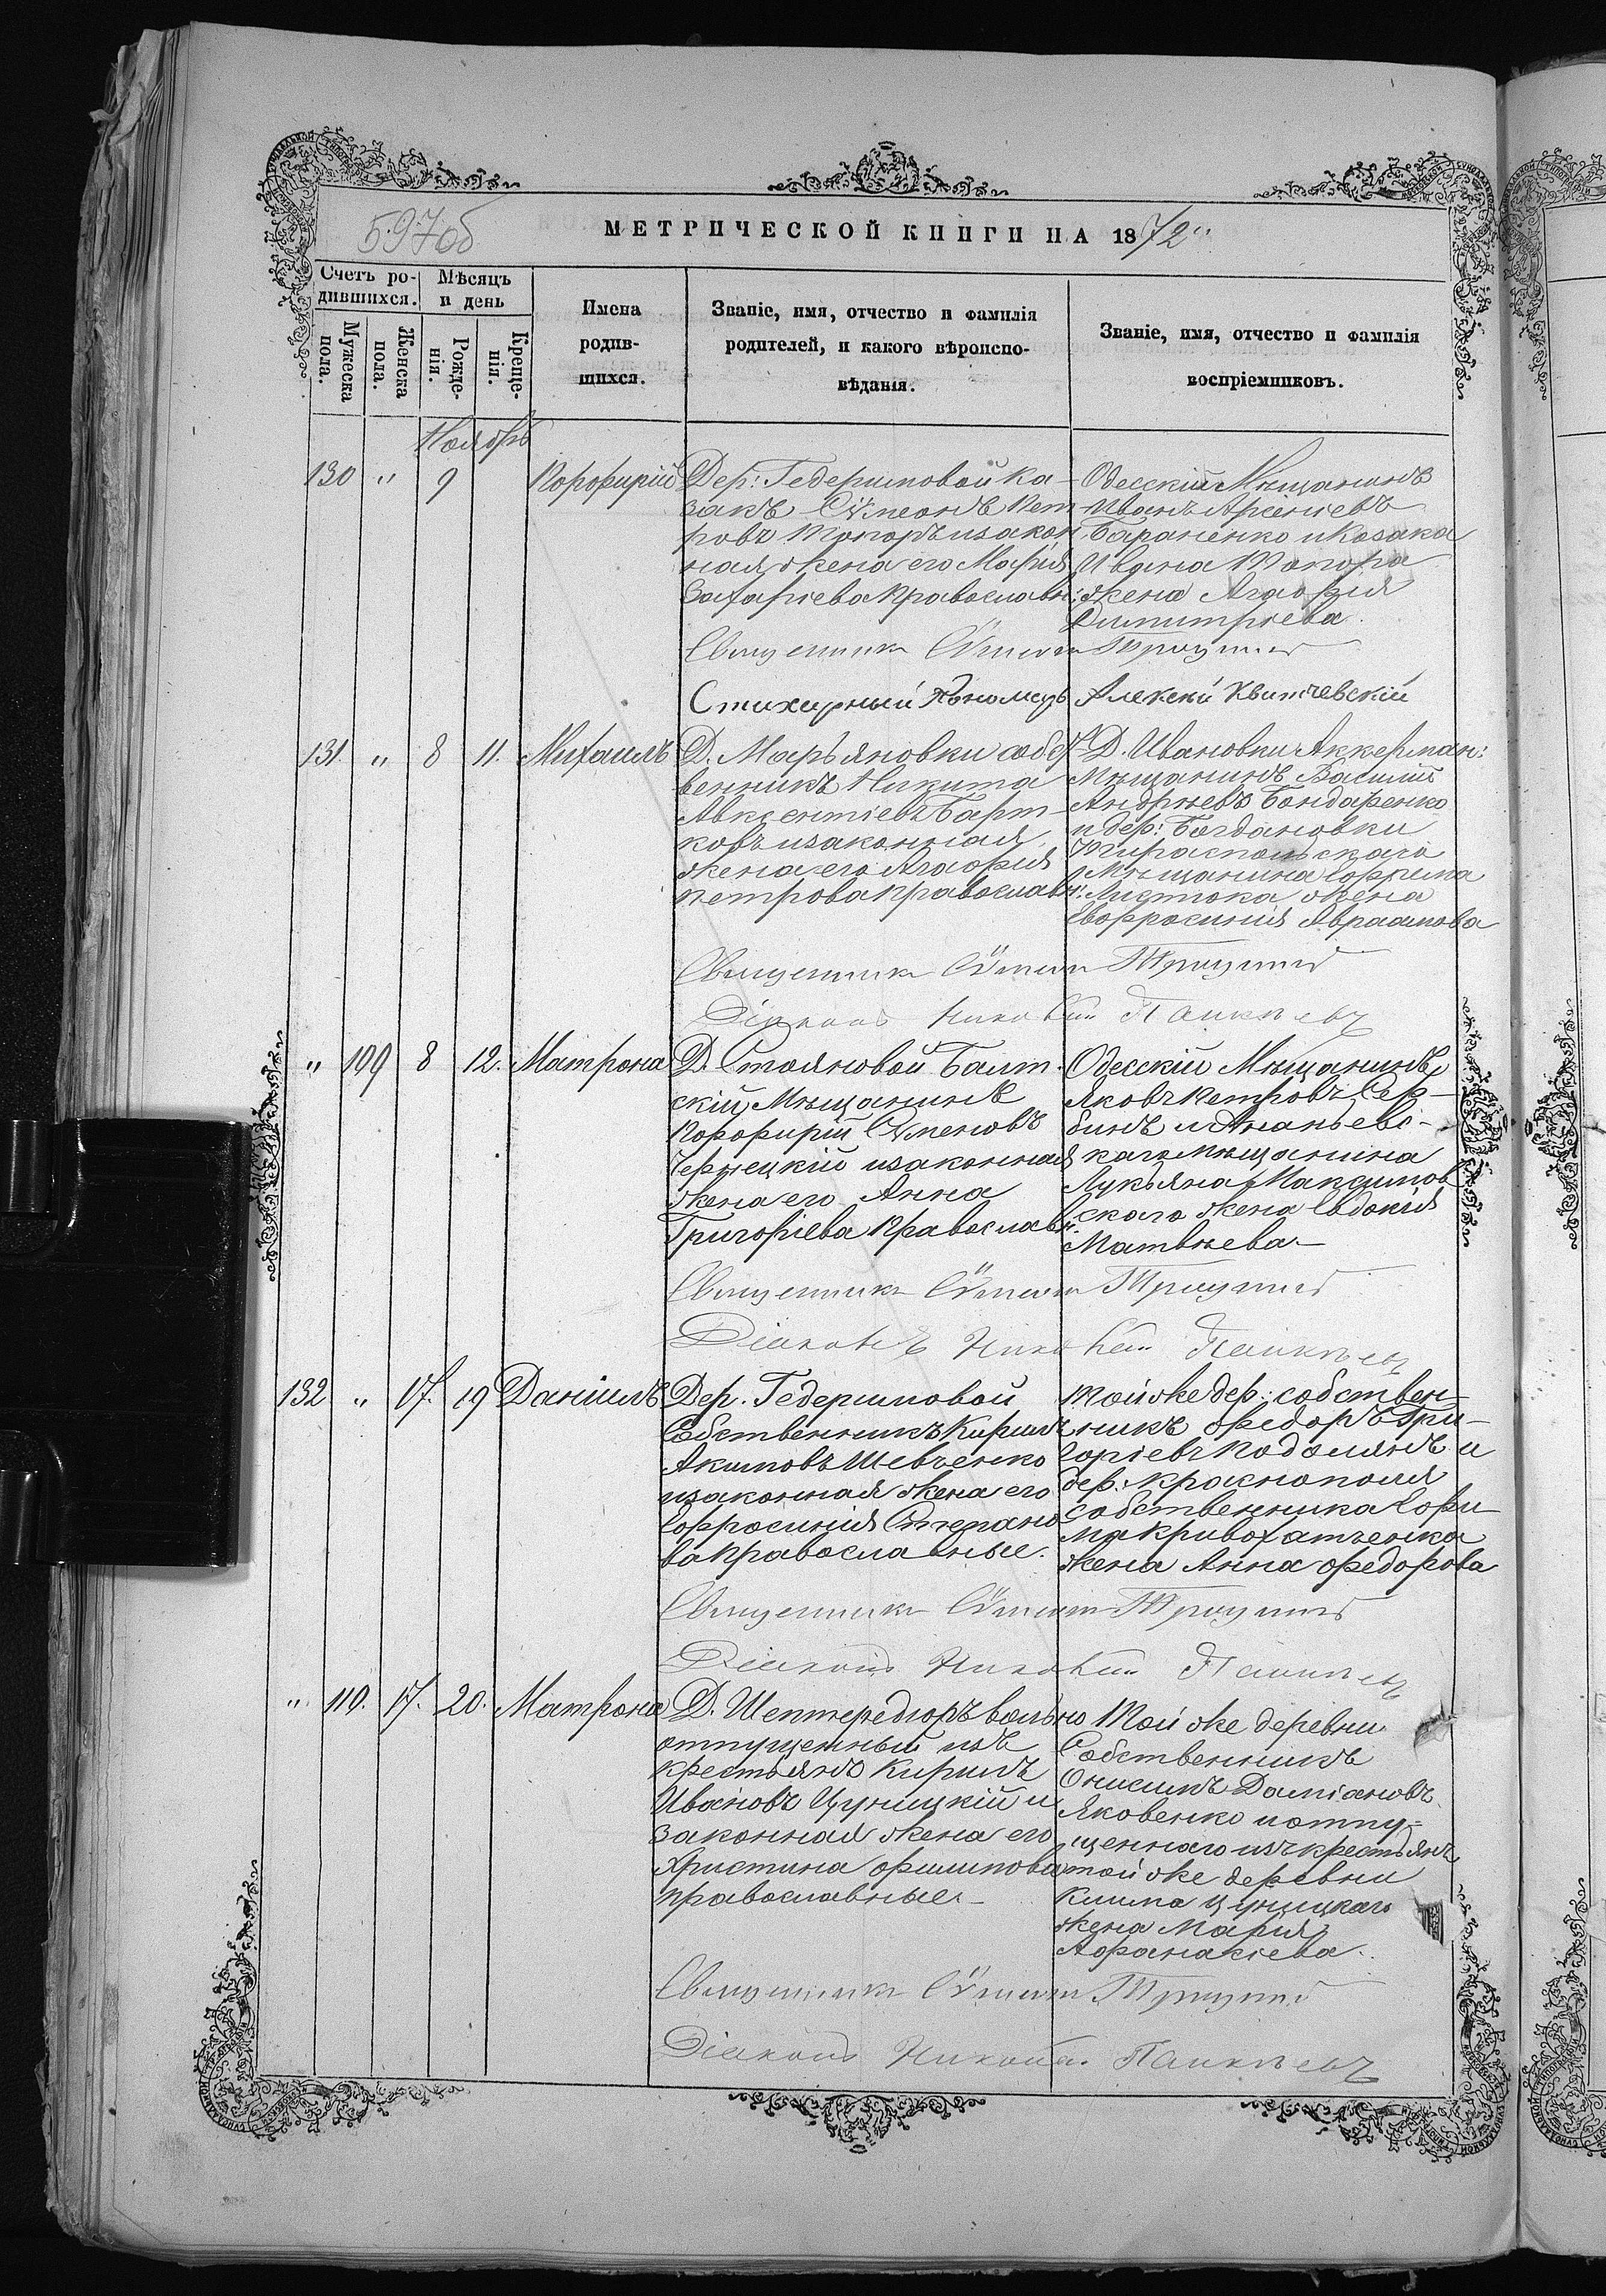 597об
МЕТРИЧЕСКОЙ КНИГИ НА 1872"
Счетъ ро-
дившихся.
Мѣсяцъ
и день
Мужеска
пола.
Женска
пола.
Рожде-
нія.
Креще-
нія.
Имена
родив-
шихся.
Званіе, имя, отчество и фамилія
родителей, и какого вѣроиспо-
вѣданія.
Званіе, имя, отчество и фамилія
воспріемниковъ.
Ноябрь
130 " 9 Порфирій
Дер: Гедеримовой ка-
закъ Сѵмеонъ Пет
ровъ Топоръ и закон
ная жена его Марія
Захаріева Православн:
Одесскій Мѣщанинъ
Иванъ Арсеніевъ
Бараненко и Козака
Ивана Топора
жена Агафія
Димитріева.
Священникъ Сѵмеон Троицкій
Стихирный Пѣномарь Алексѣй Квитчевскій
131. " 8 11. Михаилъ
Д. Марьяновки собст-
венникъ Никита
Авксентіевъ Барт-
ковъ и законная
жена его Агафія
Петрова Православн:
Д. Ивановки Аккерман:
Мѣщанинъ Василій
Андрѣевъ Бондаренко
и дер: Богдановки
Тираспольскаго
Мѣщанина Ефрима
Листока жена
Евфросинія Авраамова
Священникъ Сѵмеон Троицкій
Діаконъ Николай
" 109 8 12. Матрона
Д. Стояновой Балт-
скій Мѣщанинъ
Порфирій Сѵменовъ
Чернецкій и законная
жена его Анна
Григоріева Православн.
Одесскій Мѣщанинъ
Яковъ Петровъ Сер-
бинъ и Ананьевс-
каго мѣщанина
Лукьяна Максимов
скаго жена Евдокія
Матвѣева-
Священникъ Сѵмеон Троицкій
Діаконъ Николай
132 " 17. 19 Даніилъ
Дер. Гедеримовой
Собственникъ Кирилъ
Акимовъ Шевченко
и законная жена его
Ефросинія Степано
ва Православные.
той же дер: собствен-
никъ Федоръ Гри-
горіевъ Подолянъ и
дер: Краснополя
собственника Ефи-
ма Кривохатченка
жена Анна Федорова
Священникъ Сѵмеон Троицкій
Діаконъ Николай
" 110. 17. 20. Матрона
Д. Шептередоръ вольно
отпущенный изъ
крестьянъ Кирилъ
Ивановъ Цуницкій и
законная жена его
Христина Филипова
православные-
Той же деревни
Собственникъ
Онисимъ Даміановъ
Яковенко и отпу-
щеннаго изъ крестьянъ
той же деревни
Клима Цуницкаго
жена Марія
Афанасіева.
Священникъ Сѵмеон Троицкій
Діаконъ Николай